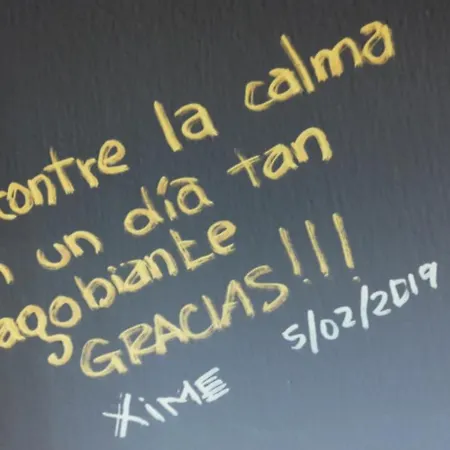 contre la calma
n un día tan
agobiante
GRACIAS!!!
XIME 5/02/2019